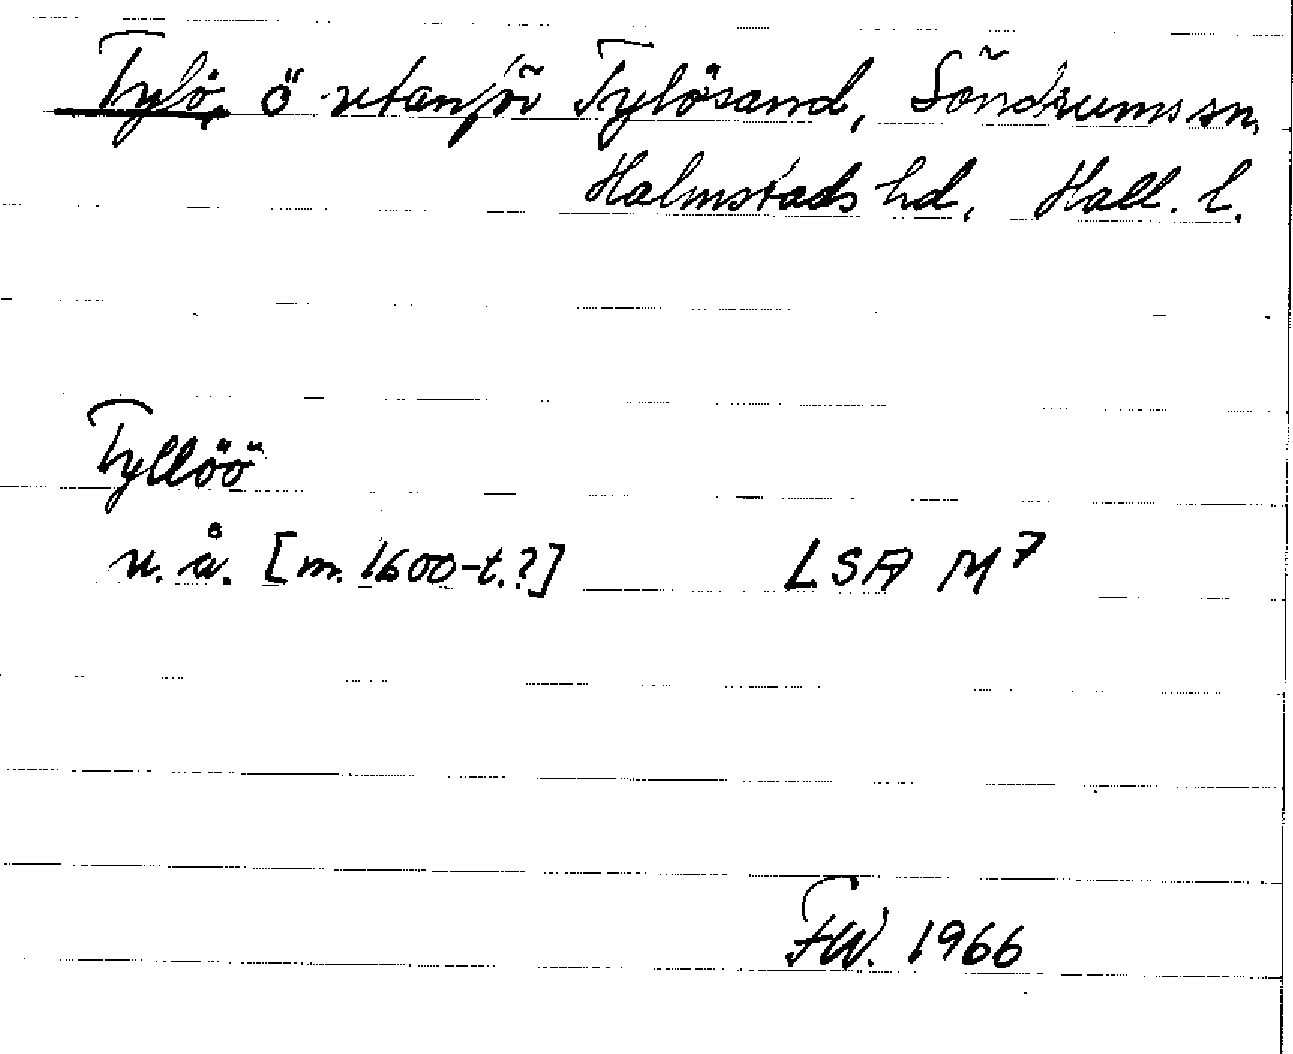 Tylö, ö utanför Tylösand, Söndrums sn,
Halmstads hd, Hall. l.
Tyllöö
u. å. [m. 1600-t.?] LSA M7
FW. 1966